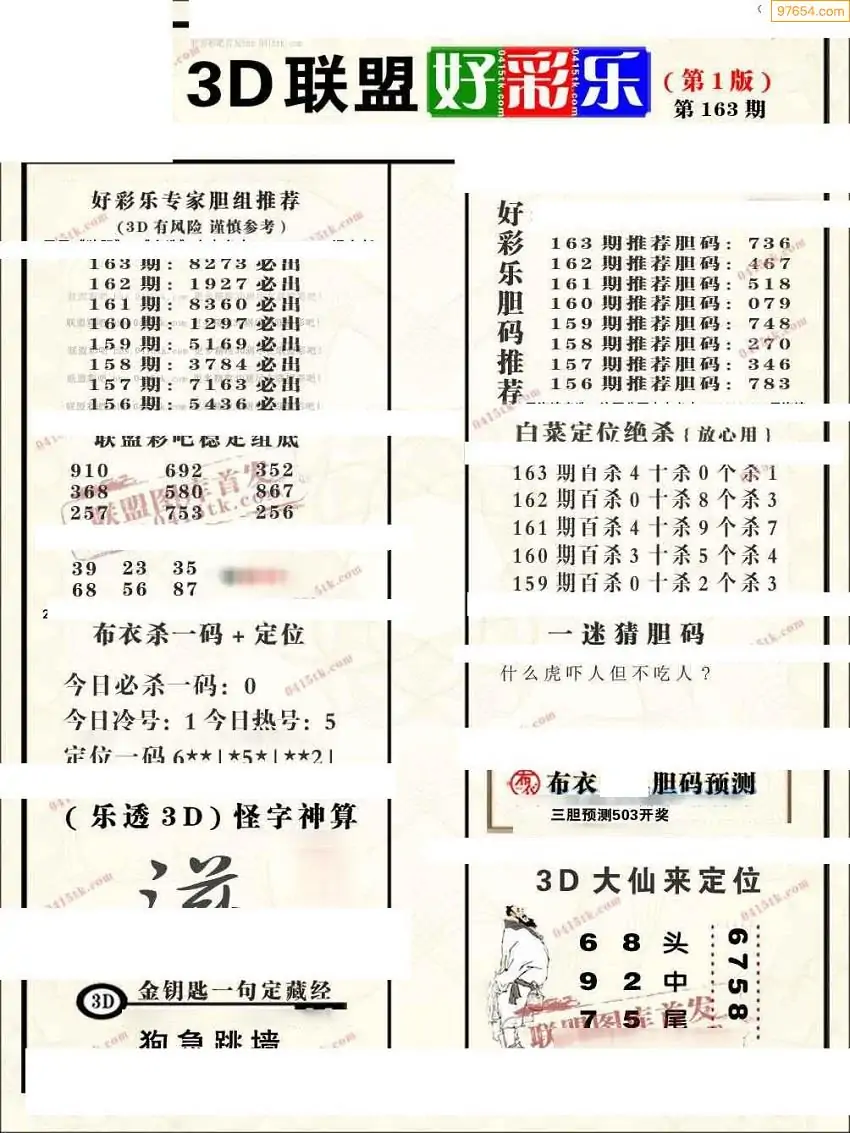 97654.com
3D联盟好彩乐
(第1版)
第163期
好彩乐专家胆组推荐
(3D有风险 谨慎参考)
163期:8273必出
162期:1927必出
161期:8360必出
160期:1297必出
159期:5169必出
158期:3784必出
157期:7163必出
156期:5436必出
联盟彩吧稳定组底
910 692 352
368 580 867
257 753 256
39 23 35
68 56 87
布衣杀一码+定位
今日必杀一码:0
今日冷号:1今日热号:5
定位一码6**|*5*|**2|
(乐透3D)怪字神算
3D
金钥匙一句定藏经
狗急跳墙
好彩乐胆码推荐
163期推荐胆码:736
162期推荐胆码:467
161期推荐胆码:518
160期推荐胆码:079
159期推荐胆码:748
158期推荐胆码:270
157期推荐胆码:346
156期推荐胆码:783
白菜定位绝杀{放心用}
163期百杀4十杀0个杀1
162期百杀0十杀8个杀3
161期百杀4十杀9个杀7
160期百杀3十杀5个杀4
159期百杀0十杀2个杀3
一迷猜胆码
什么虎吓人但不吃人?
布衣 胆码预测
三胆预测503开奖
3D大仙来定位
6 8 头
9 2 中
7 5 尾
6758
联盟图库首发
0415tk.com